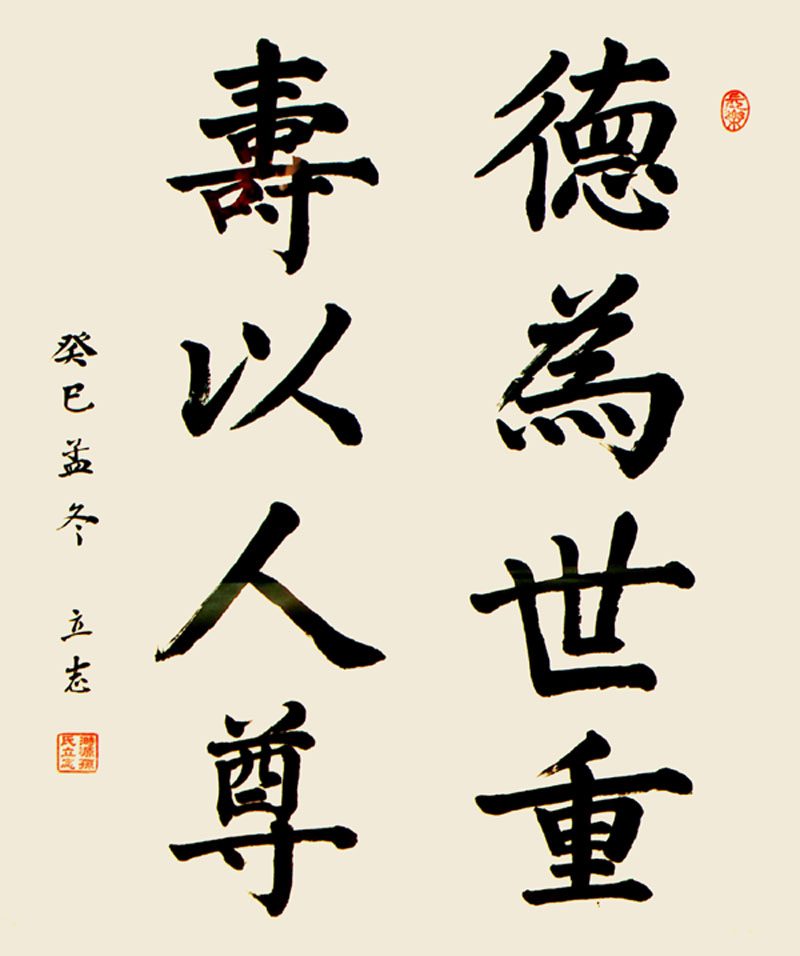 德為世重
壽以人尊
癸巳孟冬 立志